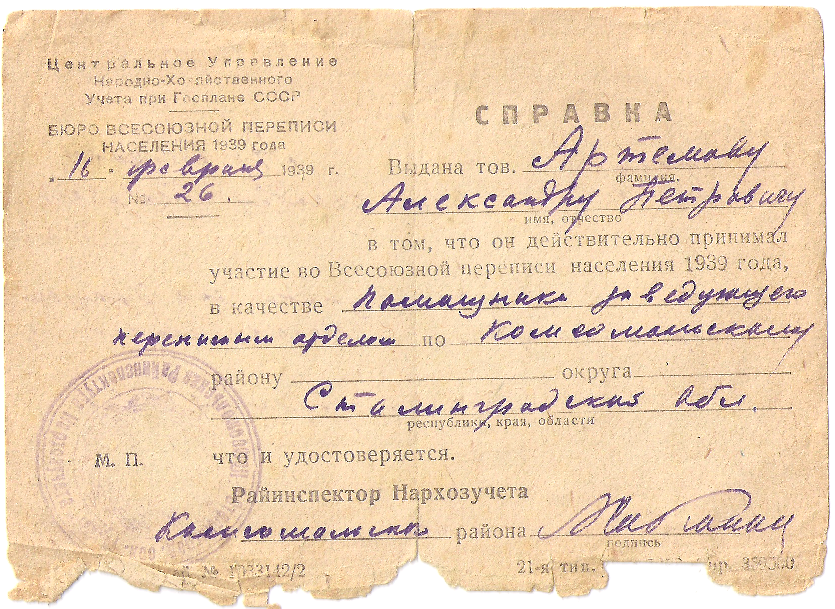 Центральное Управление
Народно-Хозяйственного
Учета при Госплане СССР
БЮРО ВСЕСОЮЗНОЙ ПЕРЕПИСИ
НАСЕЛЕНИЯ 1939 года
16 февраля 1939 г.
№ 26.
СПРАВКА
Выдана тов. Артемову
фамилия.
Александру Петровичу
имя, отчество
в том, что он действительно принимал
участие во Всесоюзной переписи населения 1939 года,
в качестве Помощника заведующего
переписным отделом по Комсомольскому
району округа
Сталинградская обл.
республики, края, области
М. П. что и удостоверяется.
Райинспектор Нархозучета
Комсомольск района
подпись
21-я тип.